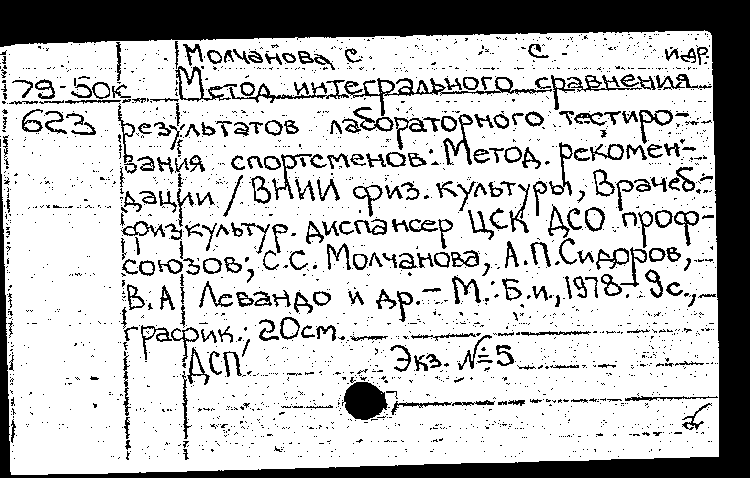 Молчанова С С и др.
79-50к Метод интегрального сравнения
623 результатов лабораторного тестиро-
вания спортсменов: Метод. рекомен-
дации / ВНИИ физ. культуры, Врачеб.-
физкультур. диспансер ЦСК ДСО проф-
союзов; С.С. Молчанова, А.П. Сидоров,
В.А Левандо и др. - М.: Б.и., 1978.- 9с.,
график.; 20см.
ДСП. Экз. №5